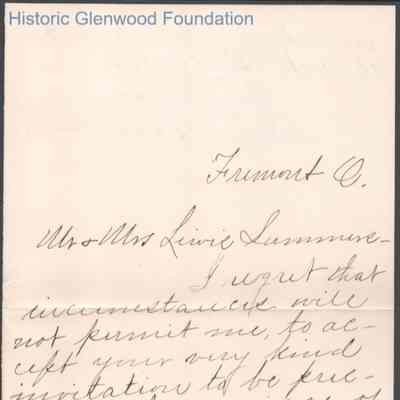 Historic Glenwood Foundation
Fremont O.
Mr & Mrs Lewis Summers -
I regret that
circumstances will
not permit me, to ac-
cept your very kind
invitation to be pre-